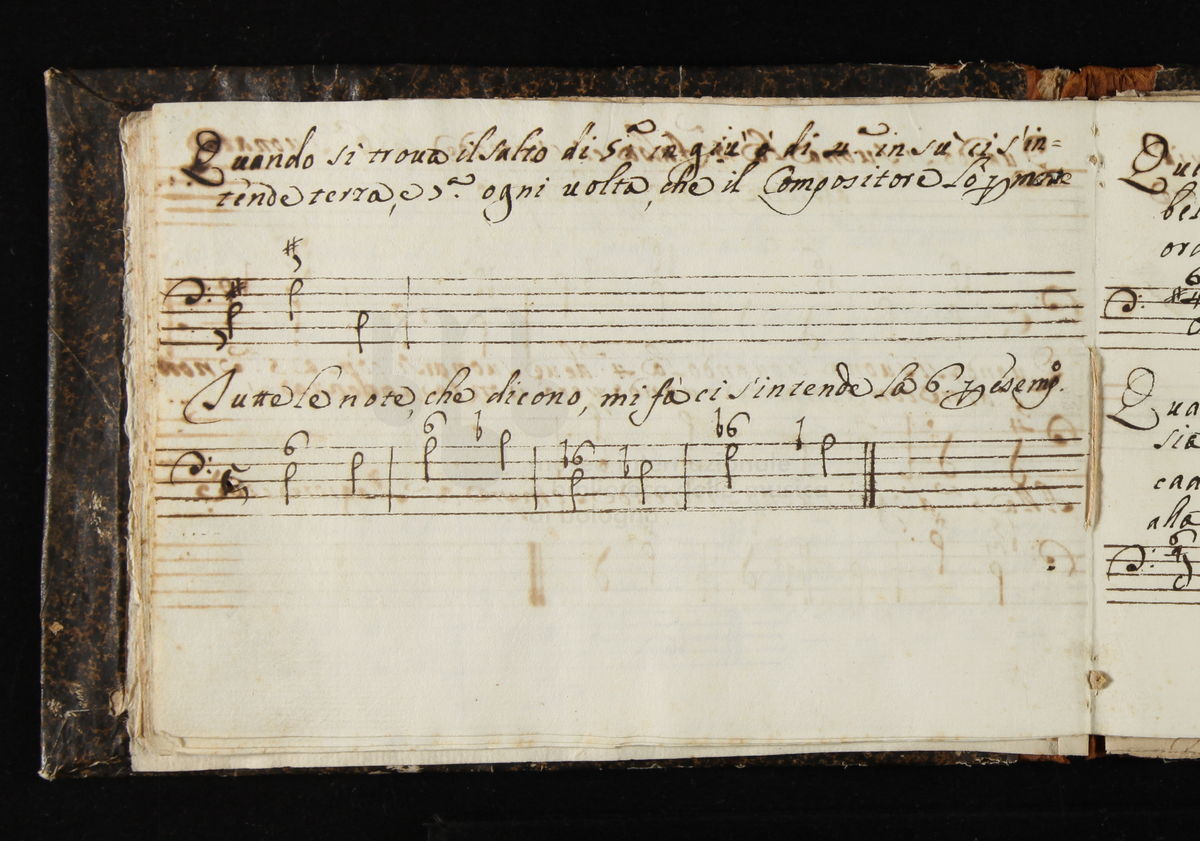 Quando si trova il salto di 5.ª in giù ò di 4.ª in sù ci s'in=
tende terza, e 5.ª ogni volta, che il Compositore lò p mette
#
Tutte le note, che dicono, mi fà ci s'intende la 6. p esemp.º
6 6 b b6 b6
Qua
sia
caa
alta
6